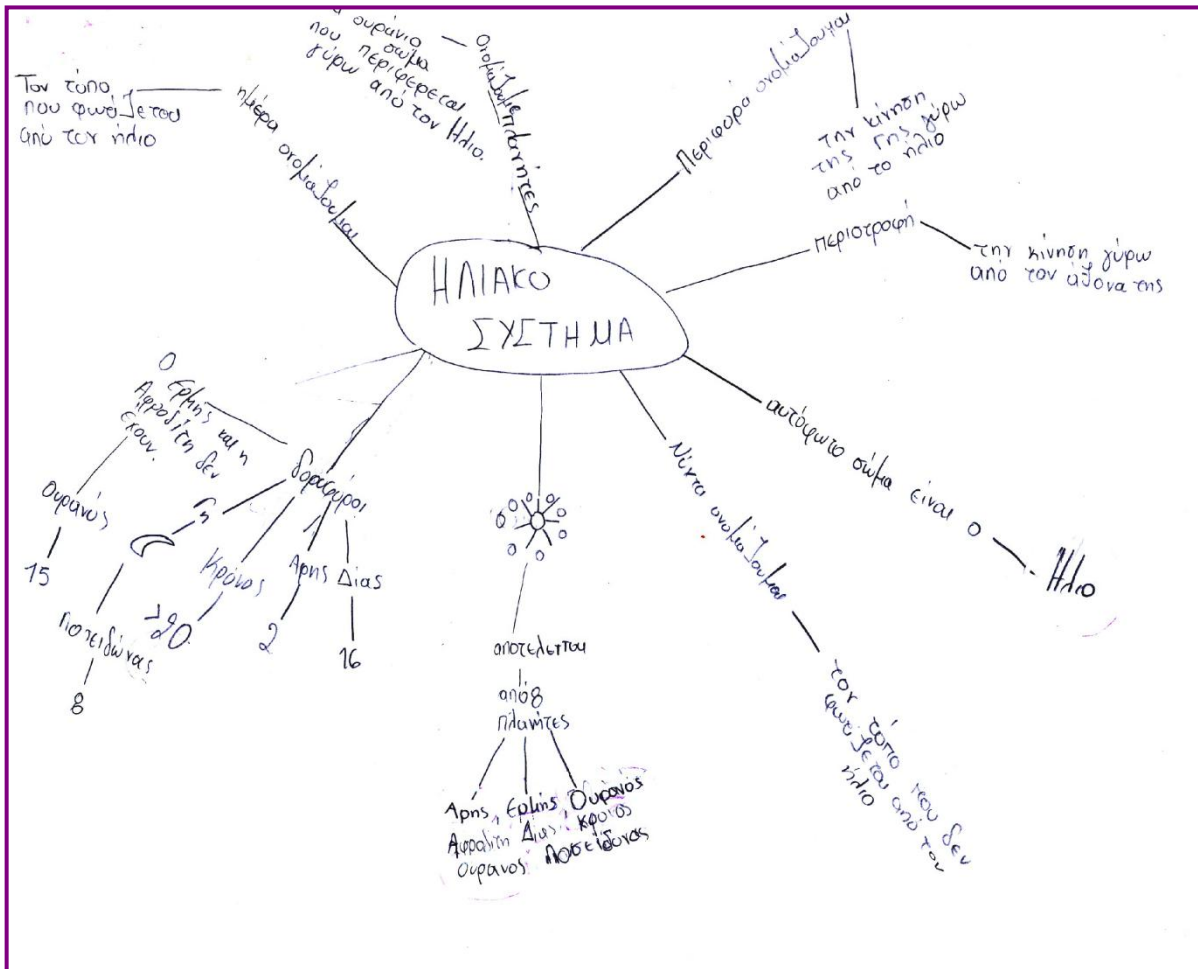 ΗΛΙΑΚΟ
ΣΥΣΤΗΜΑ
Τον τόπο
που φωτίζεται
από τον ήλιο
ημέρα ονομάζουμαι
ουράνιο
σώμα
που περιφέρεται
γύρω από τον Ηλιο.
Ονομάζουμε
πλανήτες
Περιφορα ονομάζουμαι
την κίνηση
της Γης γύρω
από το ήλιο
περιστροφή
την κίνηση γύρω
από τον άξονα της
αυτόφωτο σώμα είναι ο
Ηλιο
Νύντα ονομάζουμαι
τον τόπο που δεν
φωτίζεται από τον
ήλιο
αποτελειται
από 8
πλανήτες
Αρης, Ερμής, Ουρανός
Αφραδιτη Δίας, Κρονος
Ουρανος Ποσείδωνας
δορυφόροι
Ο
Ερμής και η
Αφροδίτη δεν
έχουν.
Ουρανός
15
Γη
Ποσειδώνας
8
Κρόνος
Αρης
2
Δίας
16